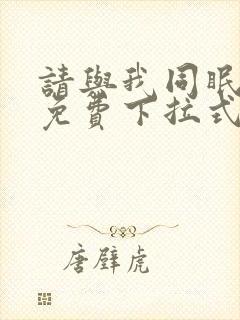 請與我同眠
免費下拉式
唐壁虎